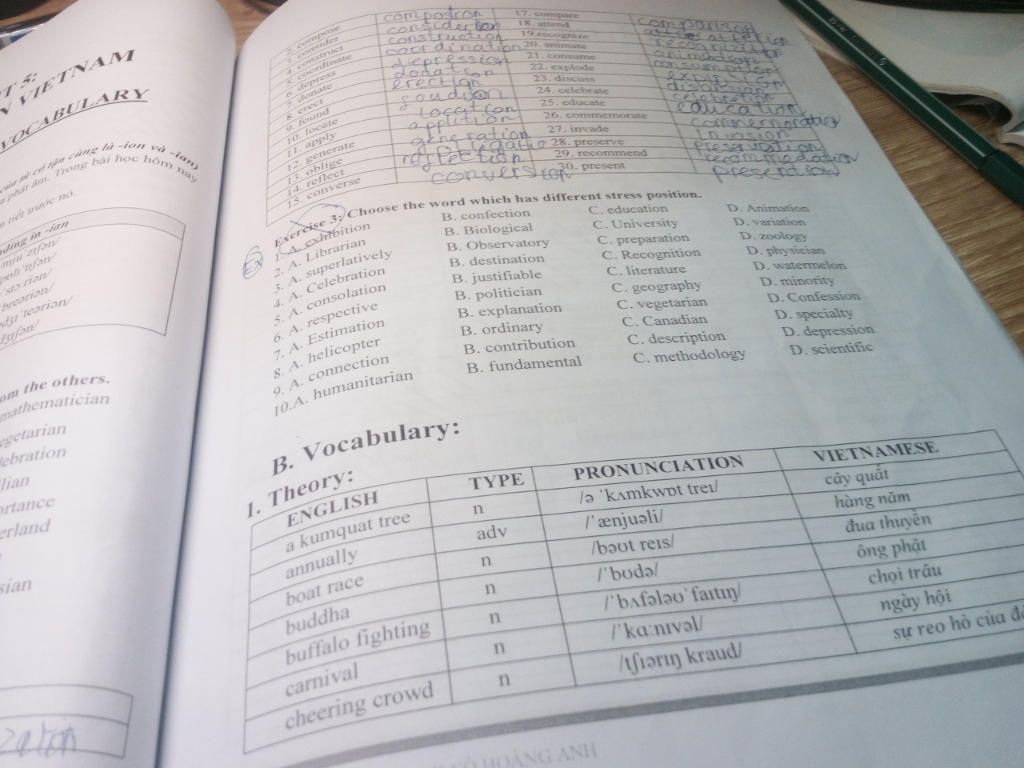 T 5:
N VIETNAM
VOCABULARY
của từ có tận cùng là -ion và -ian)
phát âm. Trong bài học hôm nay
tiết trước nó.
ding in -ian
om the others.
mathematician
egetarian
ebration
lian
ortance
erland
sian
2. compose
3. consider consideration
4. construct construction
5. coordinate coordination
6. depress depression
7. donate donation
8. erect erection
9. found
10. locate location
11. apply
12. generate generation
13. oblige
14. reflect reflection
15. converse conversion
17. compare
18. attend
19. recognize
20. animate
21. consume
22. explode
23. discuss
24. celebrate
25. educate education
26. commemorate
27. invade invasion
28. preserve preservation
29. recommend
30. present
Exercise 3: Choose the word which has different stress position.
1. A. exhibition B. confection C. education D. Animation
2. A. Librarian B. Biological C. University D. variation
3. A. superlatively B. Observatory C. preparation D. zoology
4. A. Celebration B. destination C. Recognition D. physician
5. A. consolation B. justifiable C. literature D. watermelon
6. A. respective B. politician C. geography D. minority
7. A. Estimation B. explanation C. vegetarian D. Confession
8. A. helicopter B. ordinary C. Canadian D. specialty
9. A. connection B. contribution C. description D. depression
10.A. humanitarian B. fundamental C. methodology D. scientific
B. Vocabulary:
1. Theory:
ENGLISH TYPE PRONUNCIATION VIETNAMESE
a kumquat tree n /ə ˈkʌmkwɒt treɪ/ cây quất
annually adv /ˈænjuəli/ hàng năm
boat race n /bəʊt reɪs/ đua thuyền
buddha n /ˈbʊdə/ ông phật
buffalo fighting n /ˈbʌfələʊˈfaɪtɪŋ/ chọi trâu
carnival n /ˈkɑːnɪvəl/ ngày hội
cheering crowd n /tʃɪərɪŋ kraud/ sự reo hò của
CÔ HOÀNG ANH